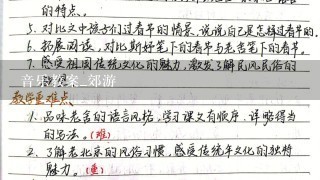 的特点。
5. 对比文中孩子们过春节的情景,说说自己是怎样过春节的。
6. 拓展阅读,对比斯妤笔下的春节与老舍笔下的春节。
7. 感受祖国传统文化的魅力,激发了解民风民俗的
音乐教案_郊游
教学重难点
1. 品味老舍的语言风格,学习课文有顺序、详略得当
的写法。(难)
2. 了解老北京的风俗习惯,感受传统年文化的独特
魅力。(重)